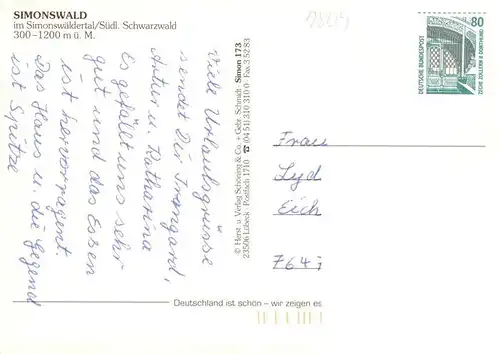 SIMONSWALD
im Simonswäldertal/Südl. Schwarzwald
300–1200 m ü. M.
Viele Urlaubsgrüsse
sendet Dir Irmgard,
Artur u. Katharina
Es gefällt uns sehr
gut und das Essen
ist hervorragent.
Das Haus u. die Gegend
ist Spitze
© Herst. u. Verlag Schöning & Co. + Gebr. Schmidt · Simon 173
23506 Lübeck · Postfach 1710 · ☎ (04 51) 310 310 0 · Fax 3 52 83
80
DEUTSCHE BUNDESPOST
ZECHE ZOLLERN II DORTMUND
Frau
Lyd
Eich
Deutschland ist schön – wir zeigen es